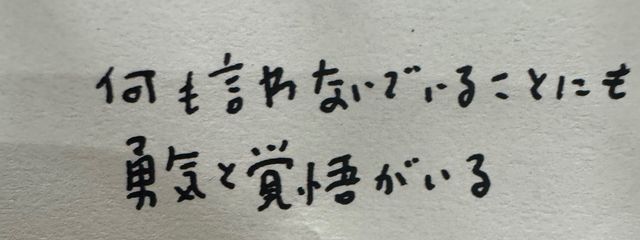 何も言わないでいることにも
勇気と覚悟がいる